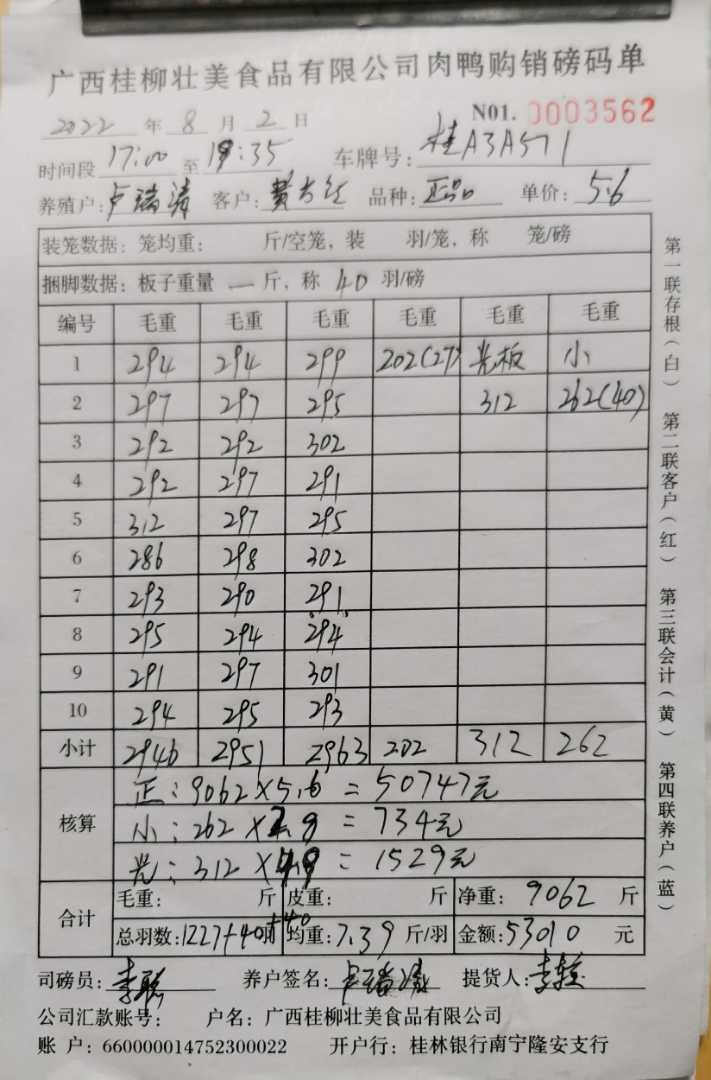 广西桂柳壮美食品有限公司肉鸭购销磅码单
2022 年 8 月 2 日 N01. 0003562
时间段 17:00 至 19:35 车牌号: 桂A3A571
养殖户: 卢瑞清 客户: 黄 品种: 正品 单价: 5.6
装笼数据: 笼均重: 斤/空笼, 装 羽/笼, 称 笼/磅
捆脚数据: 板子重量 一 斤, 称 40 羽/磅
编号 毛重 毛重 毛重 毛重 毛重 毛重
1 294 294 299 202(27) 光板 小
2 297 297 295 312 262(40)
3 292 292 302
4 292 297 291
5 312 297 295
6 286 298 302
7 293 290 291
8 295 294 294
9 291 297 301
10 294 295 293
小计 2946 2951 2963 202 312 262
核算
正: 9062×5.6 = 50747元
小: 262×2.8 = 734元
光: 312×4.9 = 1529元
合计
毛重: 斤 皮重: 斤 净重: 9062 斤
总羽数: 1227+40+40羽 均重: 7.39 斤/羽 金额: 53010 元
司磅员: 李 养户签名: 卢瑞清 提货人: 李
公司汇款账号: 户名: 广西桂柳壮美食品有限公司
账 户: 660000014752300022 开户行: 桂林银行南宁隆安支行
第一联存根(白) 第二联客户(红) 第三联会计(黄) 第四联养户(蓝)